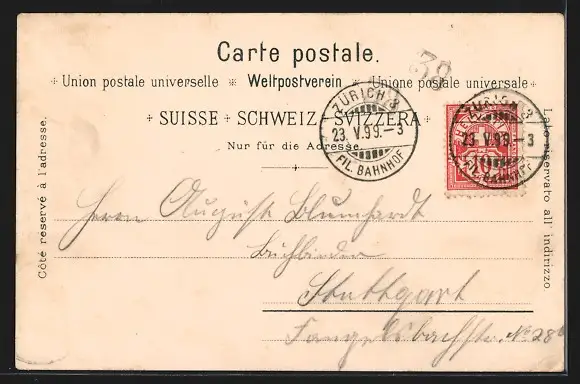 Carte postale.
39
✳ Union postale universelle ✳ Weltpostverein ✳ Unione postale universale ✳
+ SUISSE + SCHWEIZ + SVIZZERA +
Nur für die Adresse.
ZÜRICH 3
23. V. 99. – 3
FIL. BAHNHOF
ZÜRICH 3
23. V. 99. – 3
FIL. BAHNHOF
10
Côté reservé à l'adresse.
Lato riservato all' indirizzo
Herrn August Blumhardt
Buchbinder
Stuttgart
Fangelsbachstr. No. 28b